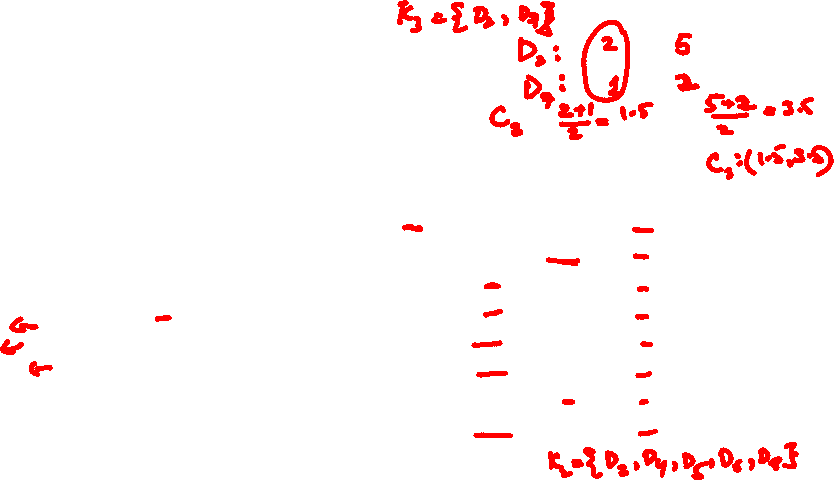 K₃ = {D₂, D₇}
D₂ : 2 5
D₇ : 1 2
C₃ 2+1/2 = 1.5 5+2/2 = 3.5
C₃ : (1.5, 3.5)
K₂ = {D₃, D₄, D₅, D₆, D₈}